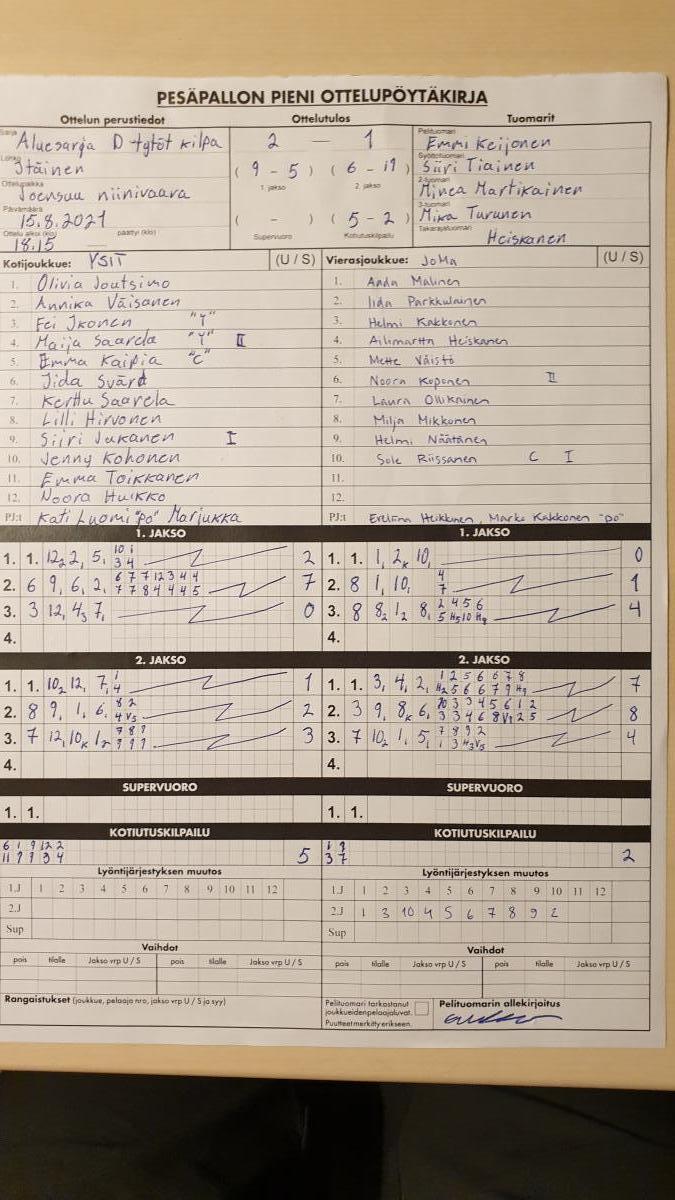 PESÄPALLON PIENI OTTELUPÖYTÄKIRJA
Ottelun perustiedot Ottelutulos Tuomarit
Sarja Aluesarja D-tytöt kilpa 2 — 1 Pelituomari Emmi Keijonen
Lohko Itäinen ( 9 - 5 ) ( 6 - 19 Syöttötuomari Siiri Tiainen
1. jakso 2. jakso
Ottelupaikka Joensuu niinivaara 2-tuomari Minea Martikainen
Päivämäärä 15.8.2021 ( - ) ( 5 - 2 ) 3-tuomari Mika Turunen
Ottelu alkoi (klo) 18.15 päättyi (klo) Supervuoro Kotiutuskilpailu Takarajatuomari Heiskanen
Kotijoukkue: YSIT (U / S) Vierasjoukkue: JoMa (U / S)
1. Olivia Joutsimo 1. Anda Malinen
2. Annika Väisänen 2. Iida Parkkulainen
3. Eei Ikonen "Y" 3. Helmi Kakkonen
4. Maija Saarela "Y" II 4. Ailimartta Heiskanen
5. Emma Kaipia "C" 5. Mette Väistö
6. Iida Svärd 6. Noora Koponen II
7. Kerttu Saarela 7. Laura Ollikainen
8. Lilli Hirvonen 8. Milja Mikkonen
9. Siiri Jukanen I 9. Helmi Näätänen
10. Jenny Kohonen 10. Sole Riissanen C I
11. Emma Toikkanen 11.
12. Noora Huikko 12.
PJ:t Kati Luomi "po" Marjukka PJ:t Eveliina Heikkinen, Marko Kakkonen "po"
1. JAKSO 1. JAKSO
1. 1. 12₂ 2, 5, 10 i 3 4 2 1. 1. 1, 2ₖ 10, 0
2. 6 9, 6, 2, 6 7 7 12 3 4 4 7 7 8 4 4 4 5 7 2. 8 1, 10, 4 7 1
3. 3 12, 4₃ 7, 0 3. 8 8₂ 1₂ 8, 2 4 5 6 5 H₅ 10 H₉ 4
4. 4.
2. JAKSO 2. JAKSO
1. 1. 10₂ 12, 7, 1 4 1 1. 1. 3, 4, 2, 1 2 5 6 6 7 8 H₂ 5 6 6 7 9 H₉ 7
2. 8 9, 1, 6, 8 2 4 V₅ 2 2. 3 9, 8ₖ 6, 10 3 3 4 5 6 1 2 3 3 4 6 8 V₁ 2 5 8
3. 7 12, 10ₖ 1₂ 7 8 9 9 9 9 3 3. 7 10₂ 1, 5, 7 8 9 2 1 3 H₃ V₅ 4
4. 4.
SUPERVUORO SUPERVUORO
1. 1. 1. 1.
KOTIUTUSKILPAILU KOTIUTUSKILPAILU
6 1 9 12 2 1 9
11 9 9 3 4 5 3 7 2
Lyöntijärjestyksen muutos Lyöntijärjestyksen muutos
1.J 1 2 3 4 5 6 7 8 9 10 11 12 1.J 1 2 3 4 5 6 7 8 9 10 11 12
2.J 2.J 1 3 10 4 5 6 7 8 9 2
Sup Sup
Vaihdot Vaihdot
pois tilalle Jakso vrp U / S pois tilalle Jakso vrp U / S pois tilalle Jakso vrp U / S pois tilalle Jakso vrp U / S
Rangaistukset (joukkue, pelaaja nro, jakso vrp U / S ja syy) Pelituomari tarkastanut joukkueiden pelaajaluvat. Puutteet merkitty erikseen. Pelituomarin allekirjoitus